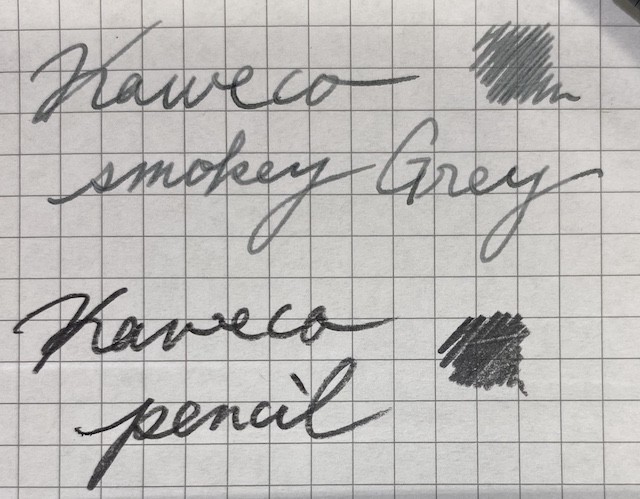 Kaweco
smokey Grey
Kaweco
pencil